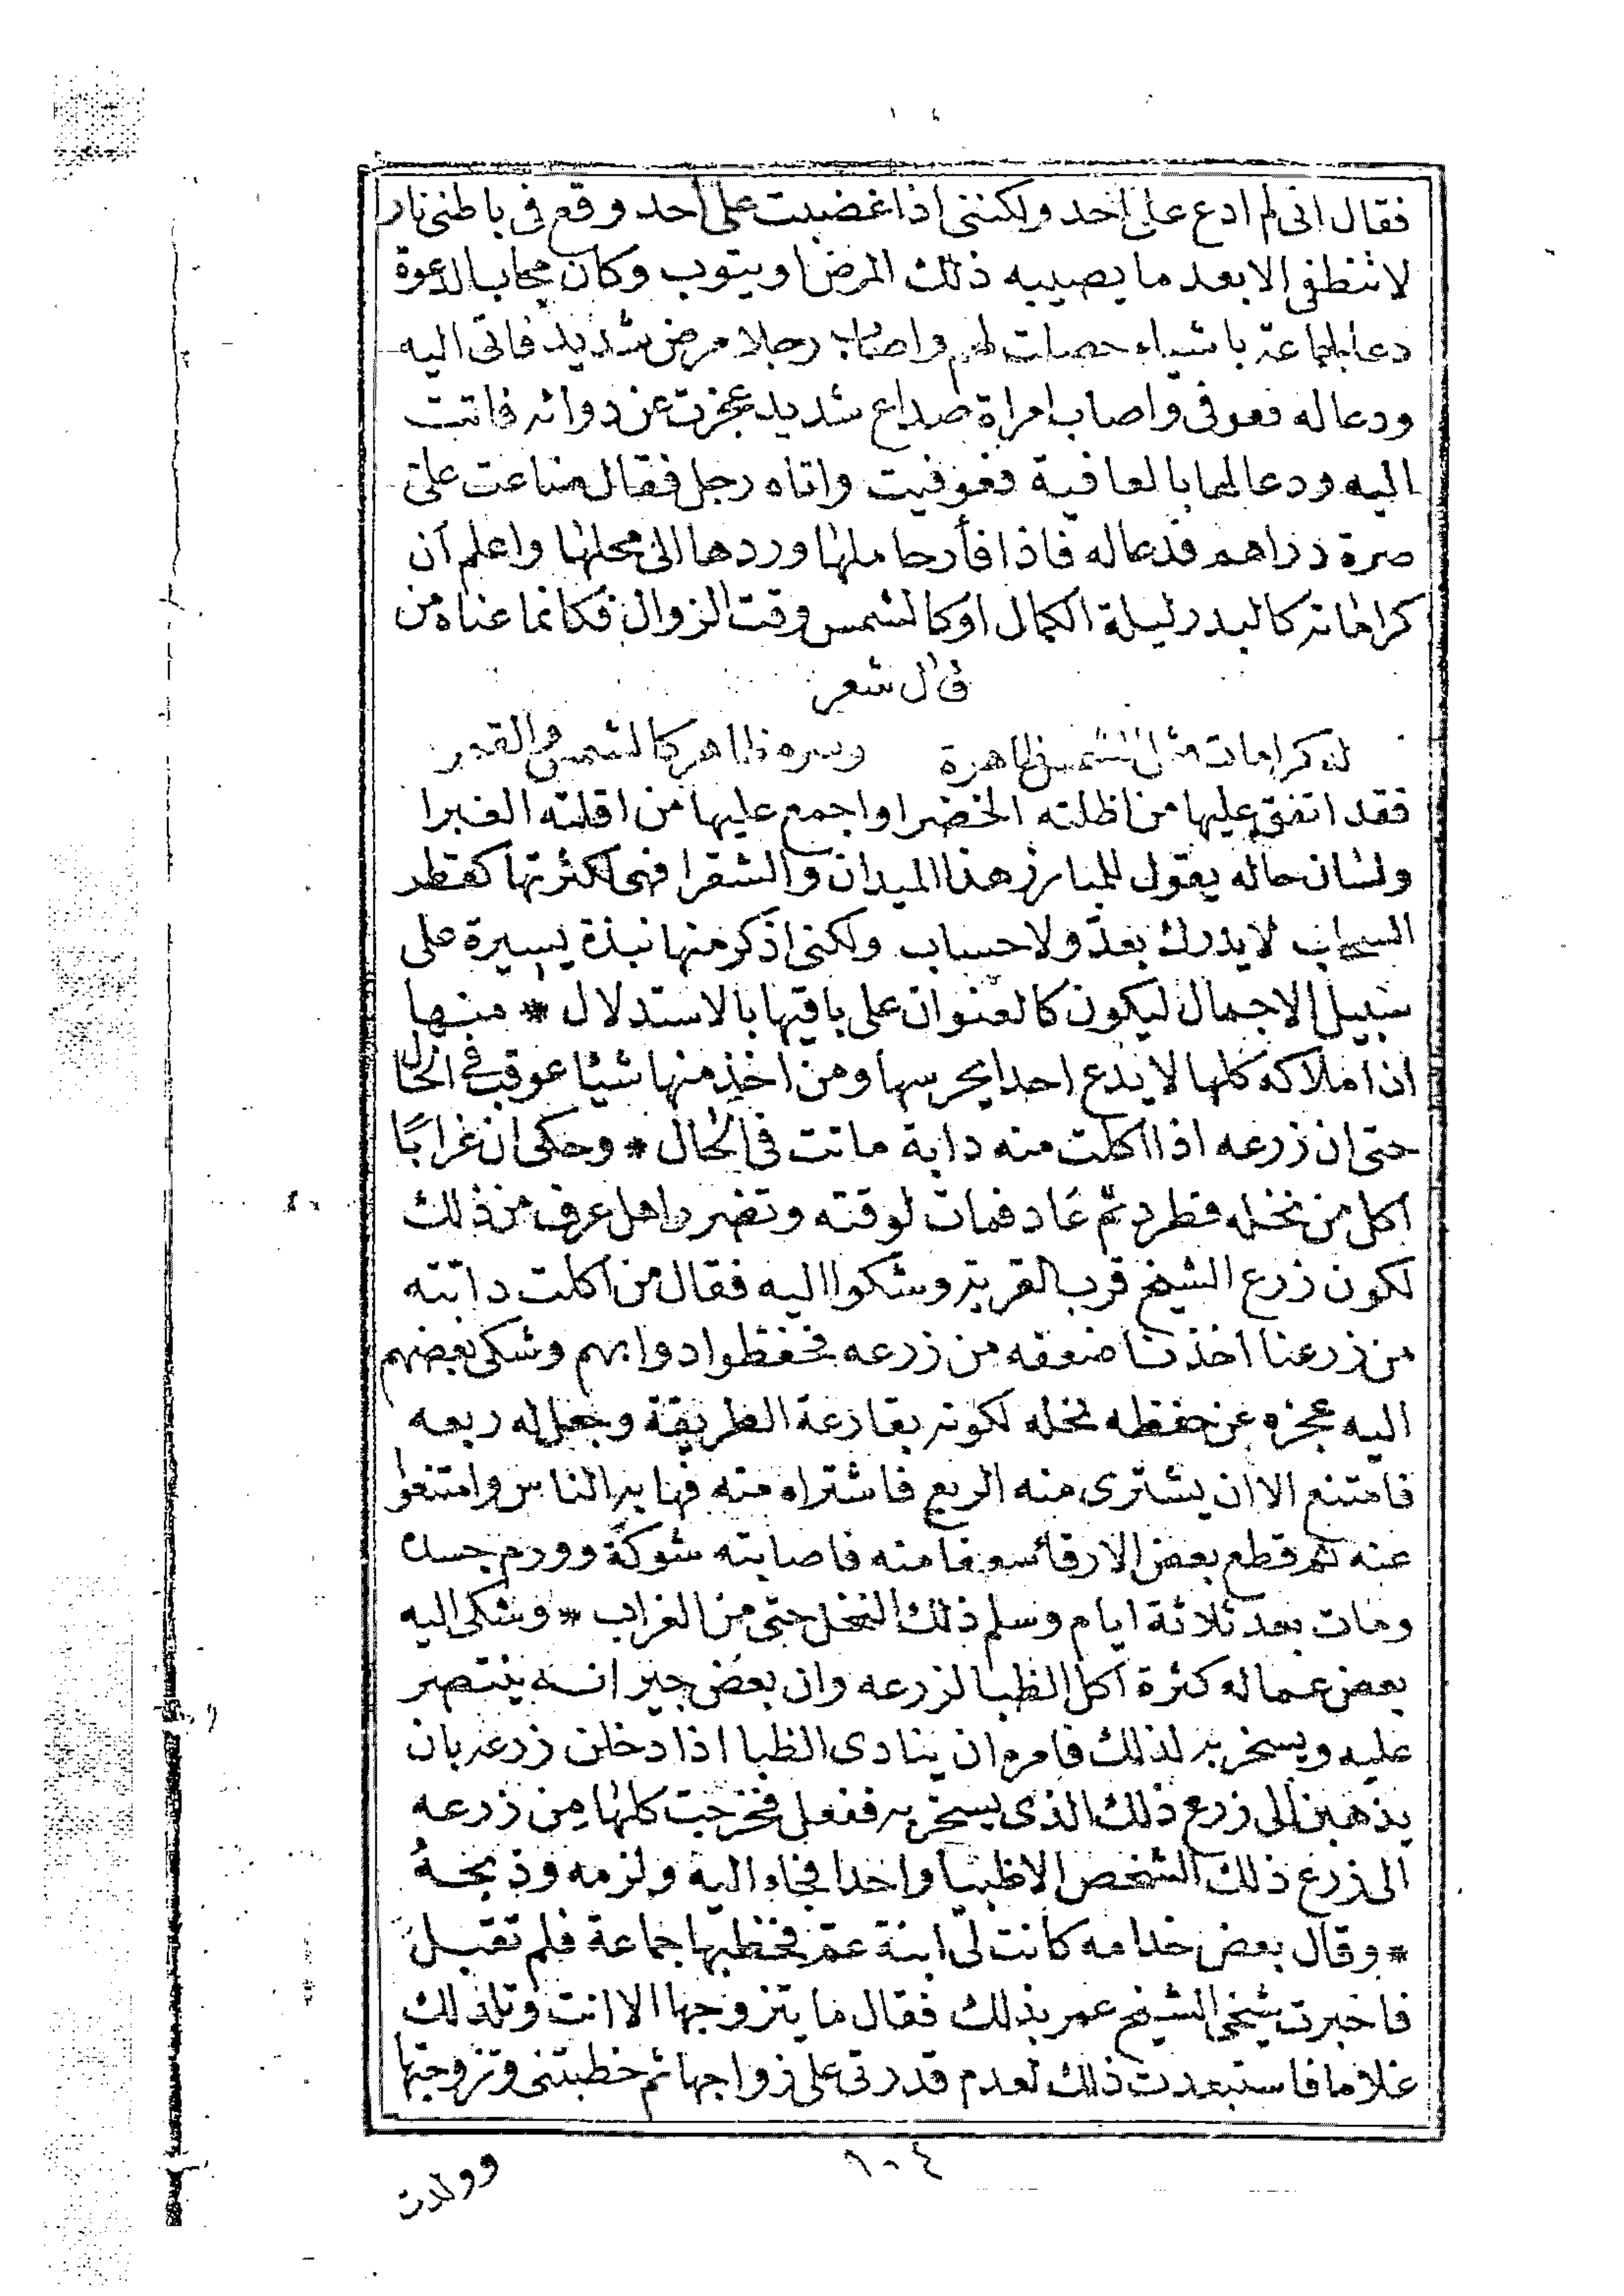 فقال انى لم ادع على احد ولكننى اذا غضبت على احد وقع فى باطنى نار
لا تنطفى الا بعد ما يصيبه ذلك المرض او يتوب وكان مجاب الدعوة
دعا لجماعة باشياء حصلت لهم واصاب رجلا مرض شديد فاتى اليه
ودعا له فعوفى واصاب امراة صداع شديد عجزت عن دوائه فاتت
اليه ودعا لها بالعافية فعوفيت واتاه رجل فقال ضاعت علىّ
صرة دراهم فدعا له فاذا فأر حاملها وردها الى محلها واعلم ان
كراماته كالبدر ليلة الكمال او كالشمس وقت الزوال فكانما عناه من
قال شعر
له كرامات مثل الشمس ظاهرة وسره ظاهر كالشمس والقمر
فقد اتفق عليها من اظلته الخضرا واجمع عليها من اقلته الغبرا
ولسان حاله يقول للمبارز هذا الميدان والشقرا فهى لكثرتها كقطر
السحاب لا يدرك بعدّ ولا حساب ولكنى اذكر منها نبذة يسيرة على
سبيل الاجمال ليكون كالعنوان على باقيها بالاستدلال * منها
ان املاكه كلها لا يدع احدا يحرسها ومن اخذ منها شيئا عوقب فى الحال
حتى ان زرعه اذا اكلت منه دابة ماتت فى الحال * وحكى ان غرابًا
اكل من نخله فطرد ثم عاد فمات لوقته وتضرر اهل عرف من ذلك
لكون زرع الشيخ قرب القرية وشكوا اليه فقال من اكلت دابته
من زرعنا اخذنا ضعفه من زرعه فحفظوا دوابهم وشكى بعضهم
اليه عجزه عن حفظه نخله لكونه بقارعة الطريقة وجعل له ربعه
فامتنع الا ان يشترى منه الربع فاشتراه منه فهابه الناس وامتنعوا
عنه ثم قطع بعض الارقا سعفا منه فاصابته شوكة وورم جسده
ومات بعد ثلاثة ايام وسلم ذلك النخل حتى من الغراب * وشكى اليه
بعض عماله كثرة اكل الظبا لزرعه وان بعض جيرانه ينتصر
عليه ويسخر به لذلك فامره ان ينادى الظبا اذا دخلن زرعه بان
يذهبن الى زرع ذلك الذى يسخر به ففعل فخرجت كلها من زرعه
الى زرع ذلك الشخص الا ظبيا واحدا فجاء اليه ولزمه وذبحهُ
* وقال بعض خدامه كانت لى ابنة عمّ فخطبها جماعة فلم تقبل
فاخبرت شيخى الشيخ عمر بذلك فقال ما يتزوجها الا انت وتلد لك
غلاما فاستبعدت ذلك لعدم قدرتى على زواجها ثم خطبتنى وتزوجتها
وولدت